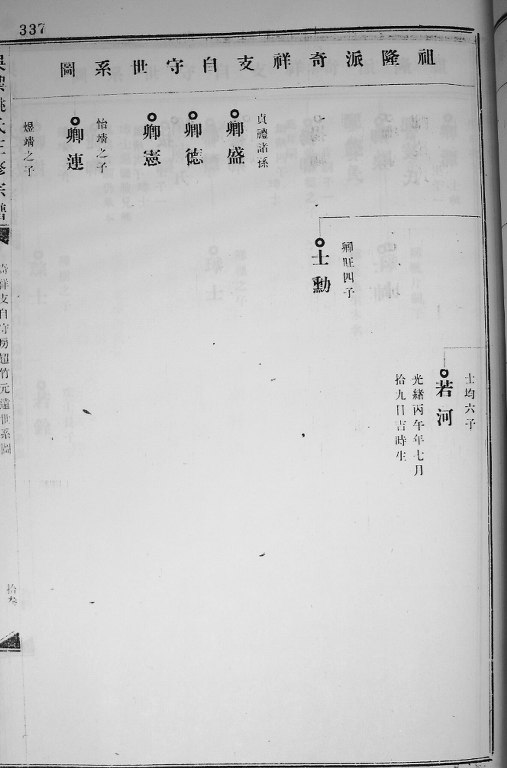 337
祖隆派奇祥支自守世系圖
士均六子
若河
光緒丙午年七月
拾九日吉時生
卿旺四子
士勳
貞禮諸係
卿盛
卿德
卿憲
怡靖之子
卿連
煜靖之子
氏三修宗譜
奇祥支自守房超竹元遠世系圖
拾叁